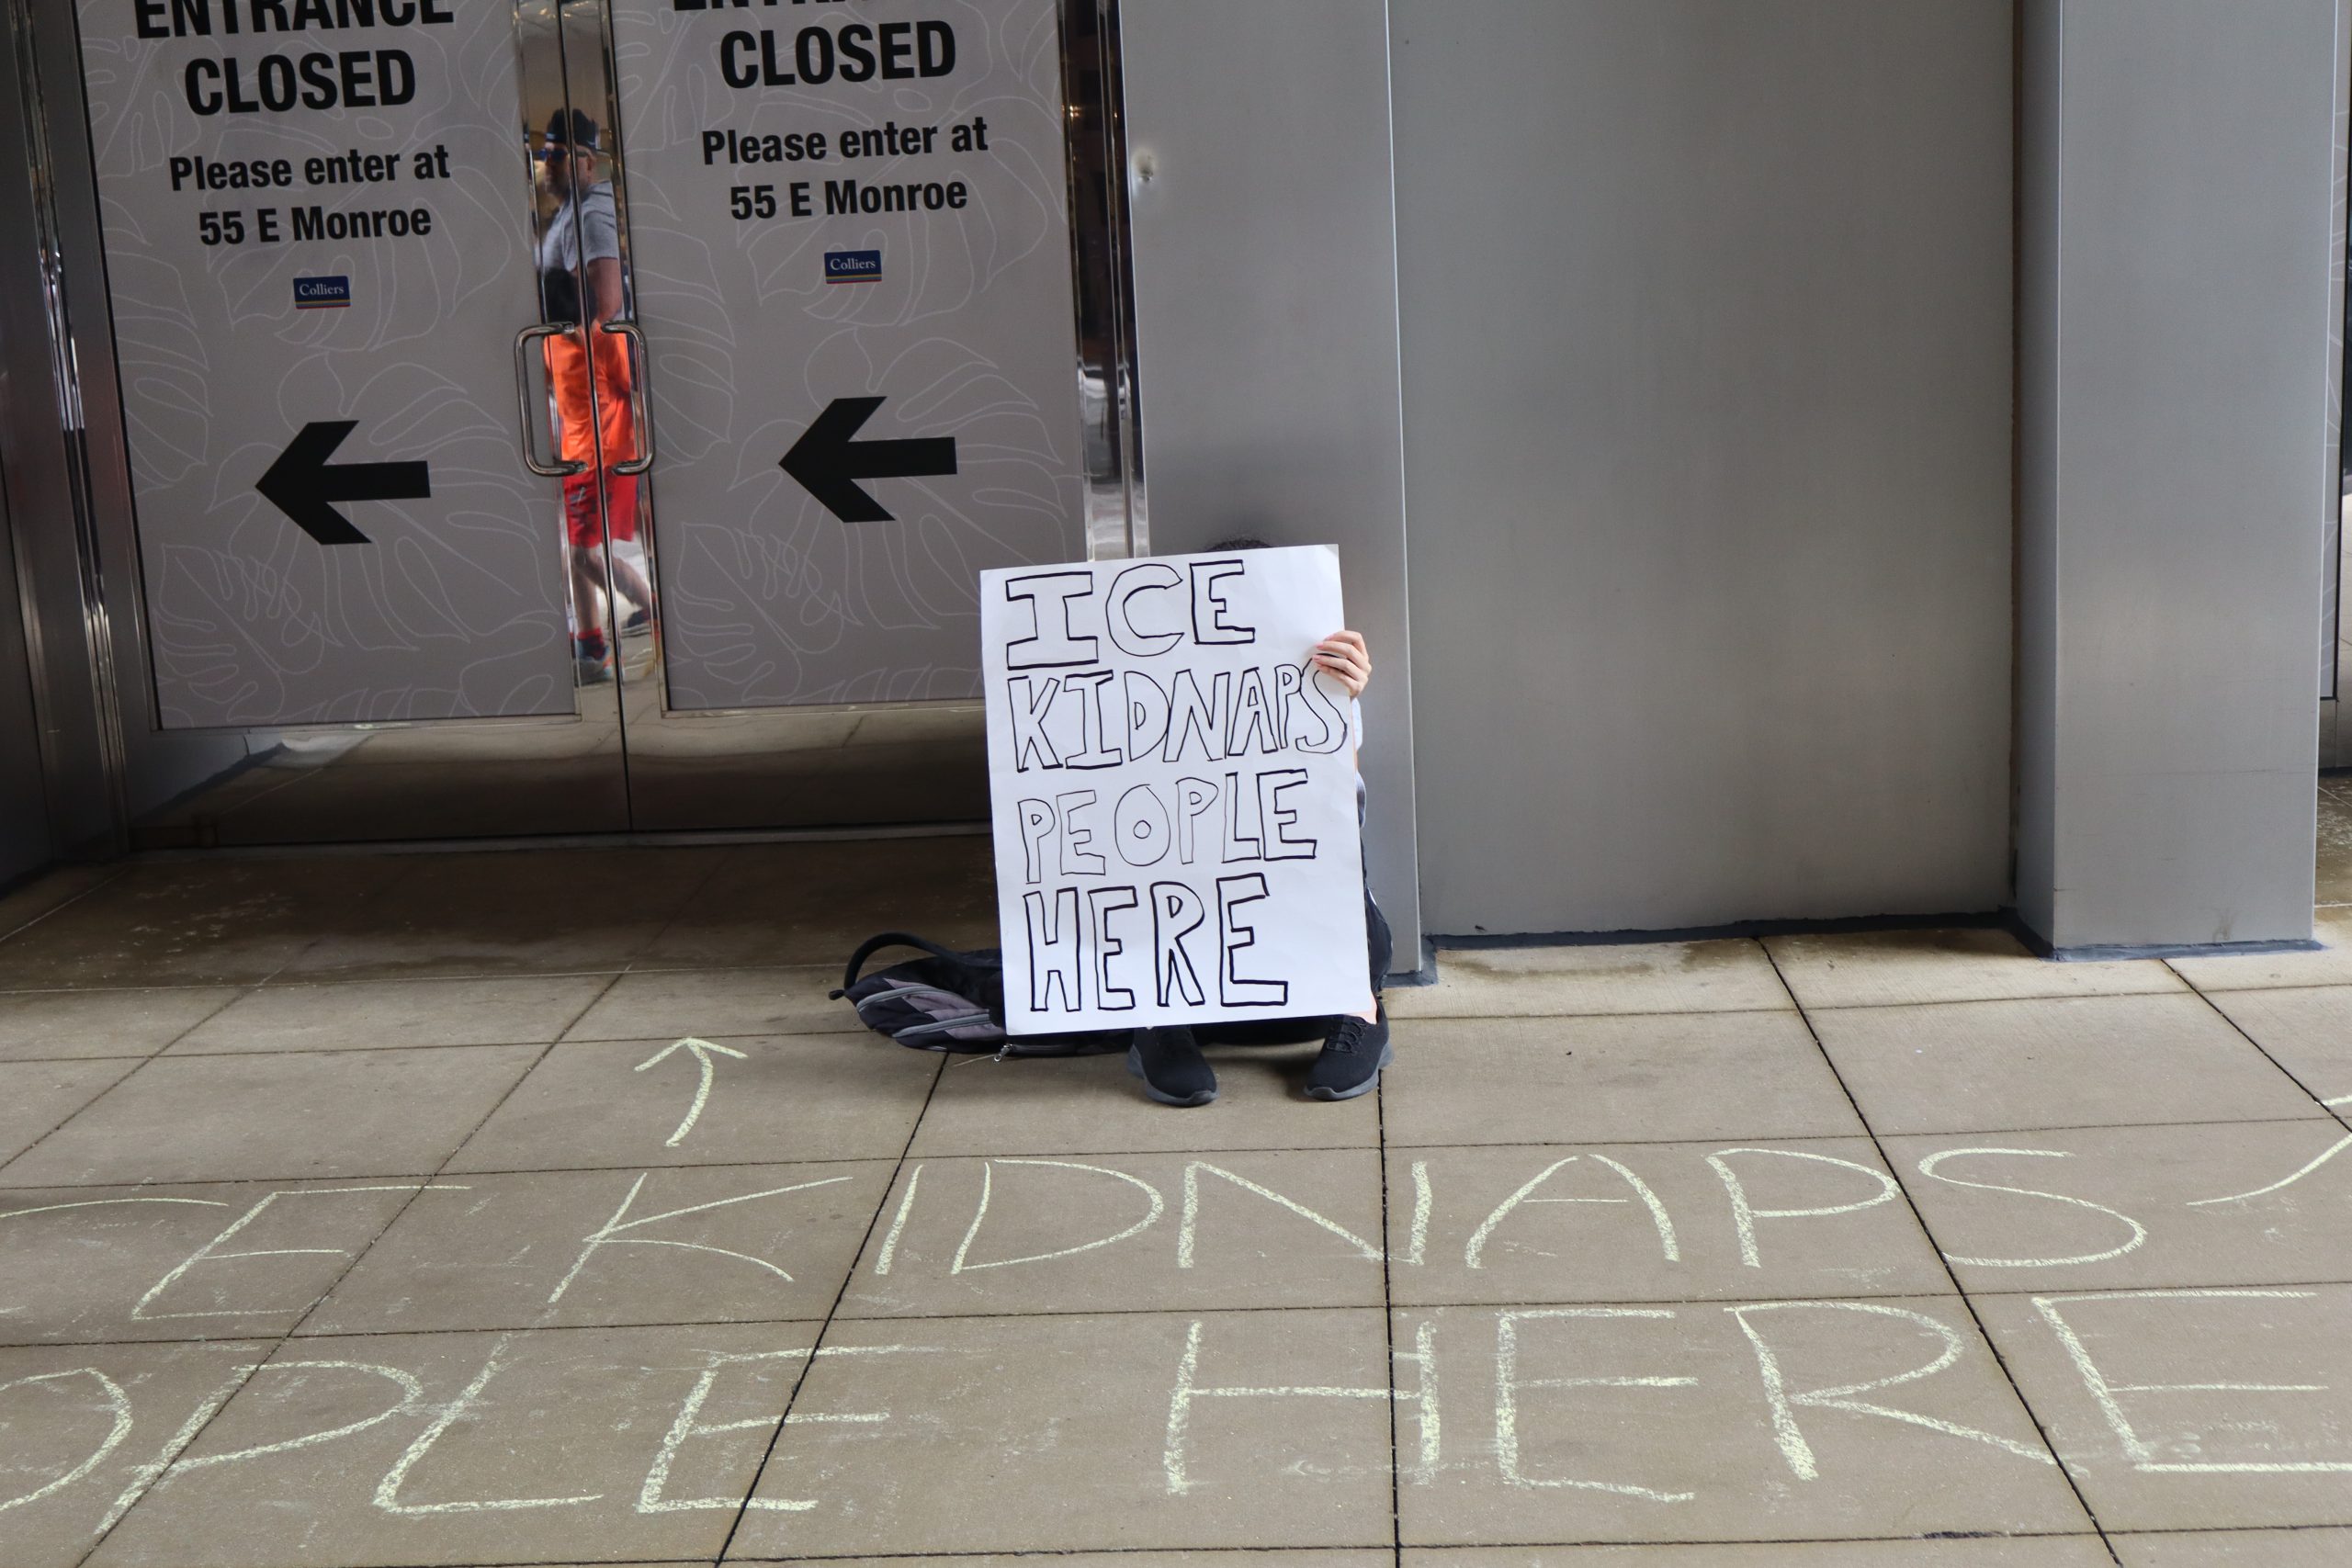 ENTRANCE
CLOSED
Please enter at
55 E Monroe
Colliers
CLOSED
Please enter at
55 E Monroe
Colliers
ICE
KIDNAPS
PEOPLE
HERE
CE KIDNAPS
OPLE HERE